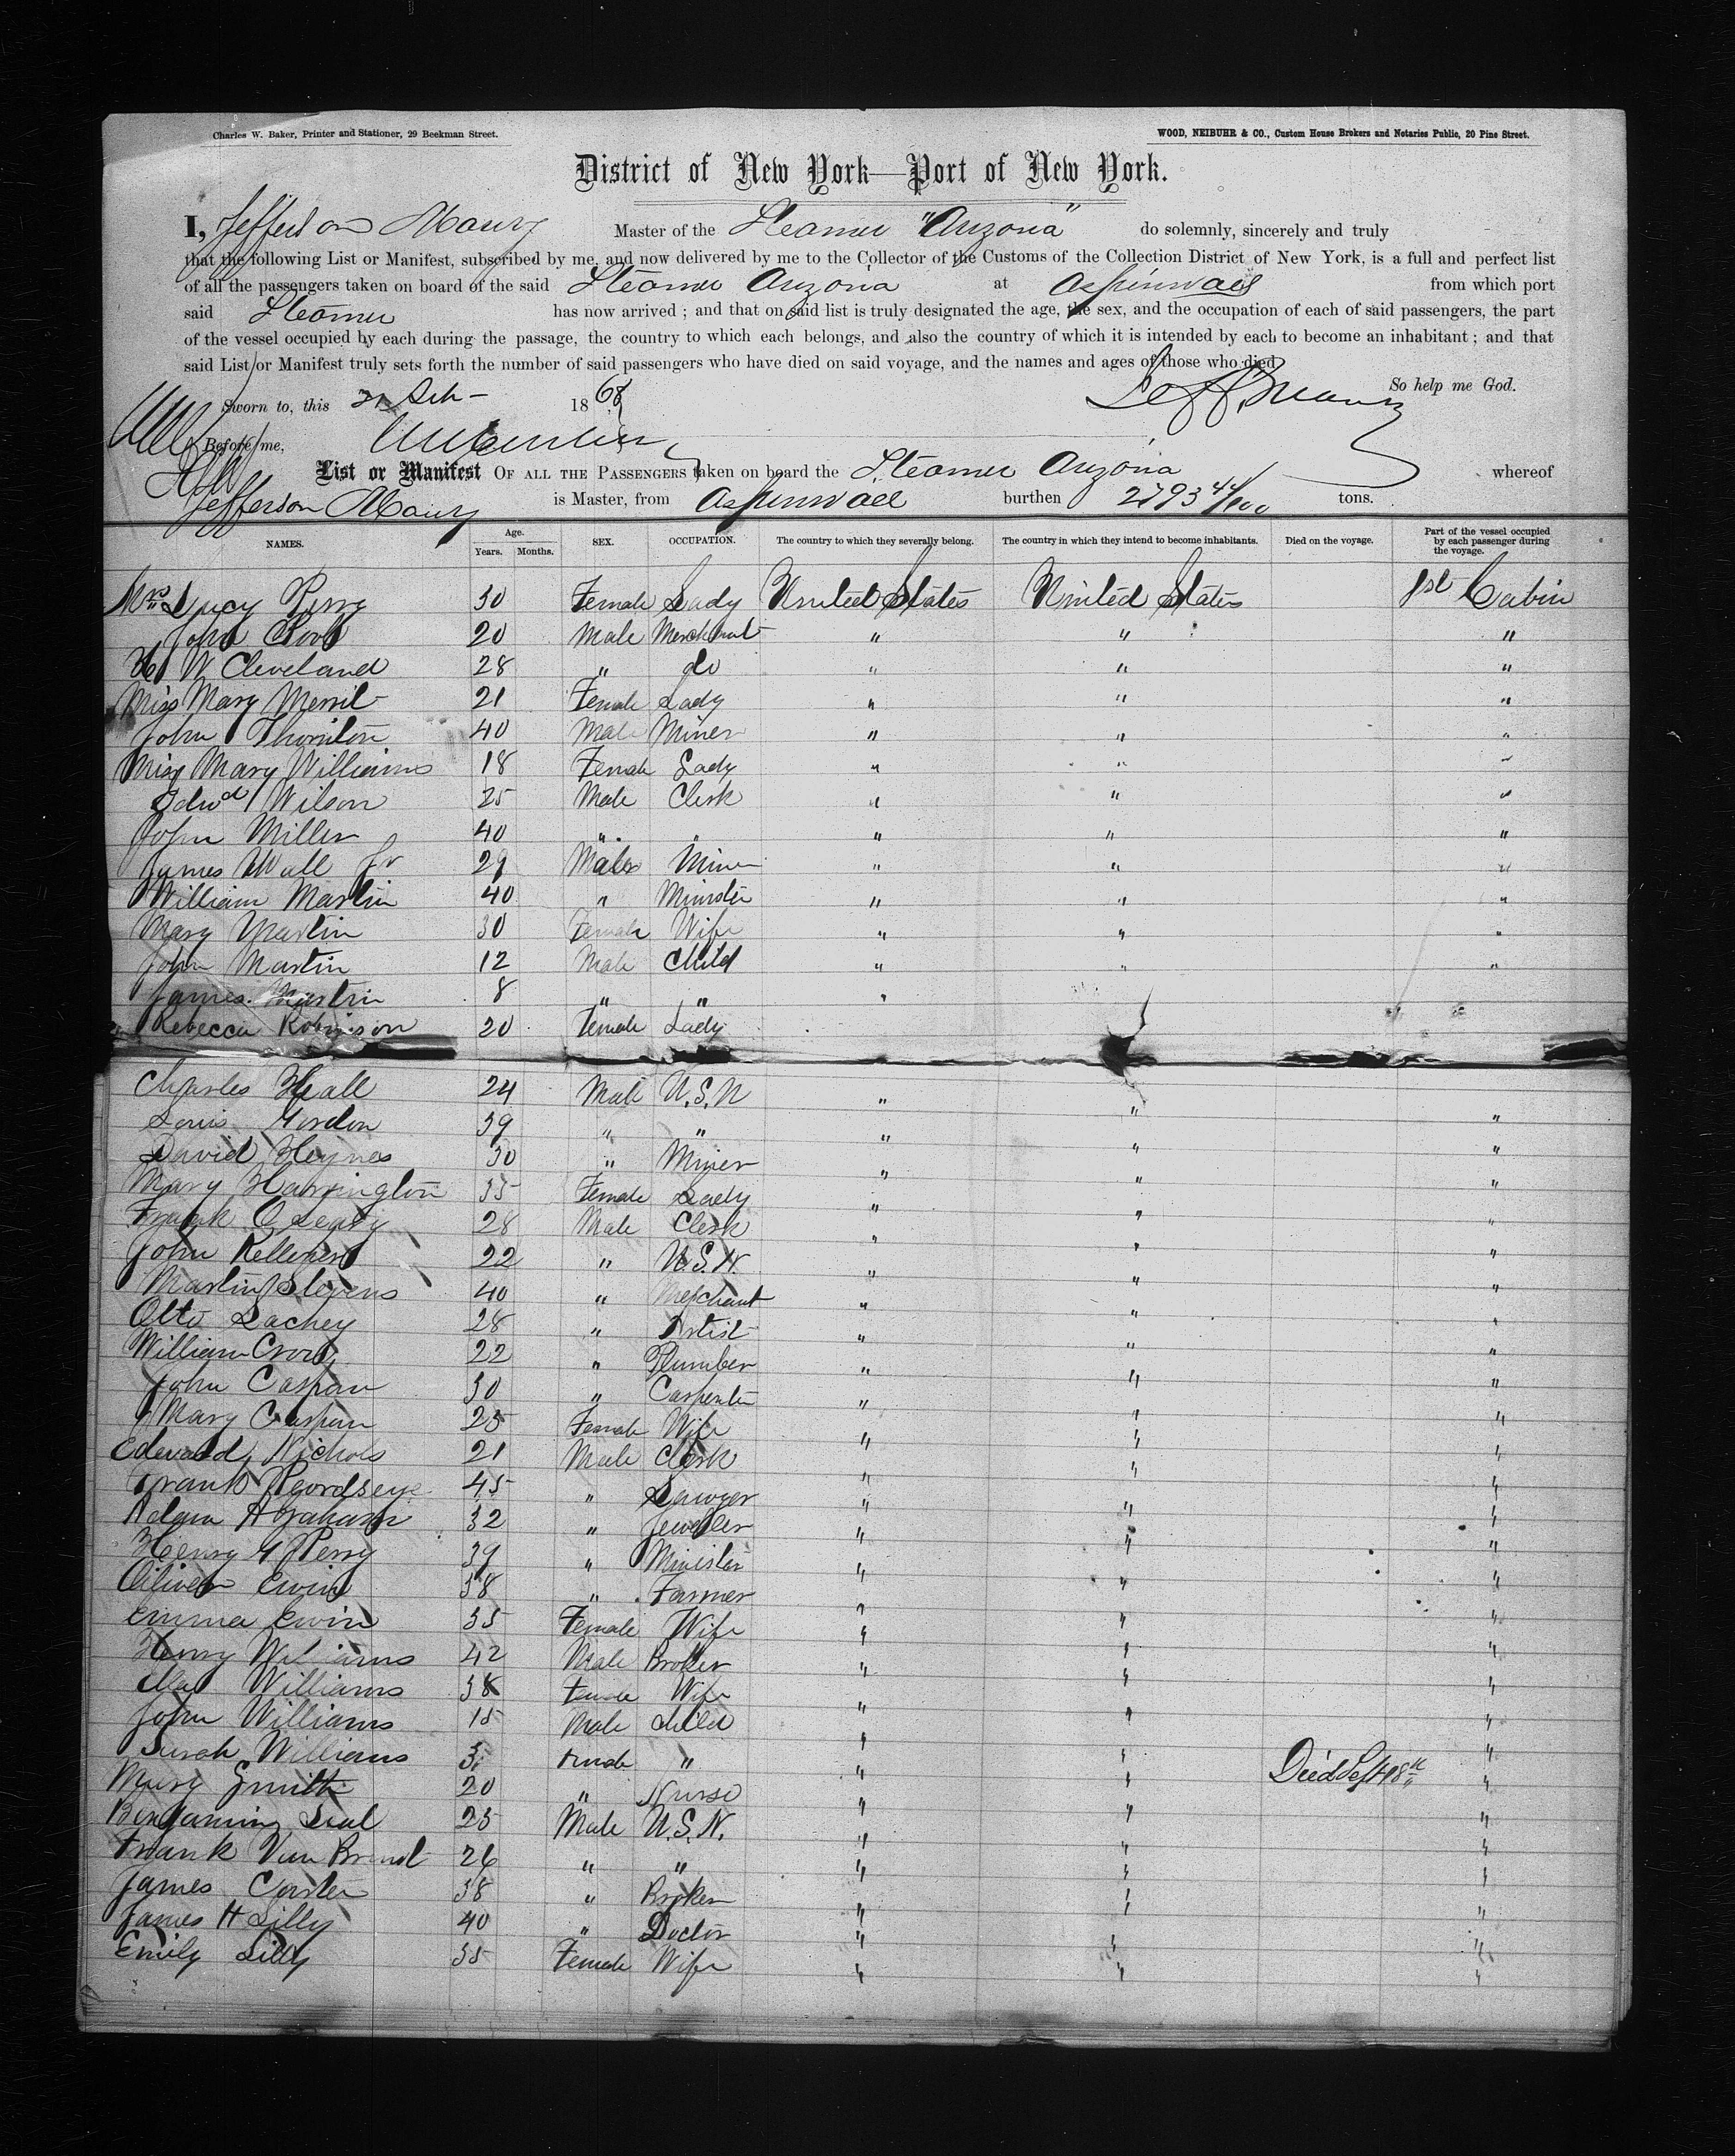 Charles W. Baker, Printer and Stationer, 29 Beekman Street.
WOOD, NEIBUHR & CO., Custom House Brokers and Notaries Public, 20 Pine Street.
District of New York—Port of New York.
I, Jefferson Maury Master of the Steamer "Arizona" do solemnly, sincerely and truly
that the following List or Manifest, subscribed by me, and now delivered by me to the Collector of the Customs of the Collection District of New York, is a full and perfect list
of all the passengers taken on board of the said Steamer Arizona at Aspinwall from which port
said Steamer has now arrived ; and that on said list is truly designated the age, the sex, and the occupation of each of said passengers, the part
of the vessel occupied by each during the passage, the country to which each belongs, and also the country of which it is intended by each to become an inhabitant ; and that
said List or Manifest truly sets forth the number of said passengers who have died on said voyage, and the names and ages of those who died.
So help me God.
Sworn to, this 21 Seb - 1868 Jeff. Maury
Before me,
List or Manifest OF ALL THE PASSENGERS taken on board the Steamer Arizona whereof
Jefferson Maury is Master, from Aspinwall burthen 2793 44/100 tons.
NAMES. Age. Years. Months. SEX. OCCUPATION. The country to which they severally belong. The country in which they intend to become inhabitants. Died on the voyage. Part of the vessel occupied by each passenger during the voyage.
Mrs Lucy Perry 30 Female Lady United States United States 1st Cabin
John 20 Male Merchant " " "
H W Cleveland 28 " do " " "
Miss Mary Merril 21 Female Lady " " "
John Thornton 40 Male Miner " " "
Miss Mary Williams 18 Female Lady " " "
Edwd Wilson 25 Male Clerk " " "
John Miller 40 " " " " "
James Wall Jr 29 Male Miner " " "
William Martin 40 " Minister " " "
Mary Martin 30 Female Wife " " "
John Martin 12 Male Child " " "
James Martin 8 " " "
Rebecca Robinson 20 Female Lady
Charles Hall 24 Male U.S.N " " "
Louis Gordon 39 " " " " "
David Heynes 30 " Miner " " "
Mary Harrington 35 Female Lady " " "
Frank O Leary 28 Male Clerk " " "
John 22 " U.S.N. " " "
Martin Stevens 40 " Merchant " " "
Otto Lachey 28 " Artist " " "
William Crow 22 " Plumber " " "
John Caspan 30 " Carpenter " " "
Mary Caspan 25 Female Wife " " "
Edward Nichols 21 Male Clerk " " "
Frank 45 " Lawyer " " "
Adam Abraham 32 " Jeweller " " "
Henry G Perry 39 " Minister " " "
Oliver Ewin 38 " Farmer " " "
Emma Ewin 35 Female Wife " " "
Henry Williams 42 Male Broker " " "
Ella Williams 38 Female Wife " " "
John Williams 15 Male Child " " "
Sarah Williams 3 Female " " " Died Sept 18th "
Mary Smith 20 " Nurse " " "
Bengaming Seal 25 Male U.S.N. " " "
Frank Van Brunt 26 " " " " "
James Carter 38 " Broker " " "
James H Lilly 40 " Doctor " " "
Emily Lilly 35 Female Wife " " "